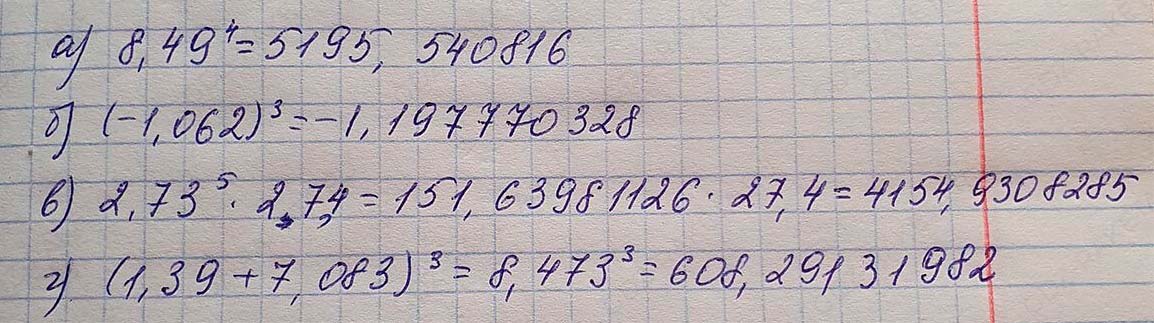 а) 8,49⁴ = 5195, 540816
б) (-1,062)³ = -1,197770328
в) 2,73⁵ · 27,4 = 151,63981126 · 27,4 = 4154,9308285
г) (1,39 + 7,083)³ = 8,473³ = 608,29131982